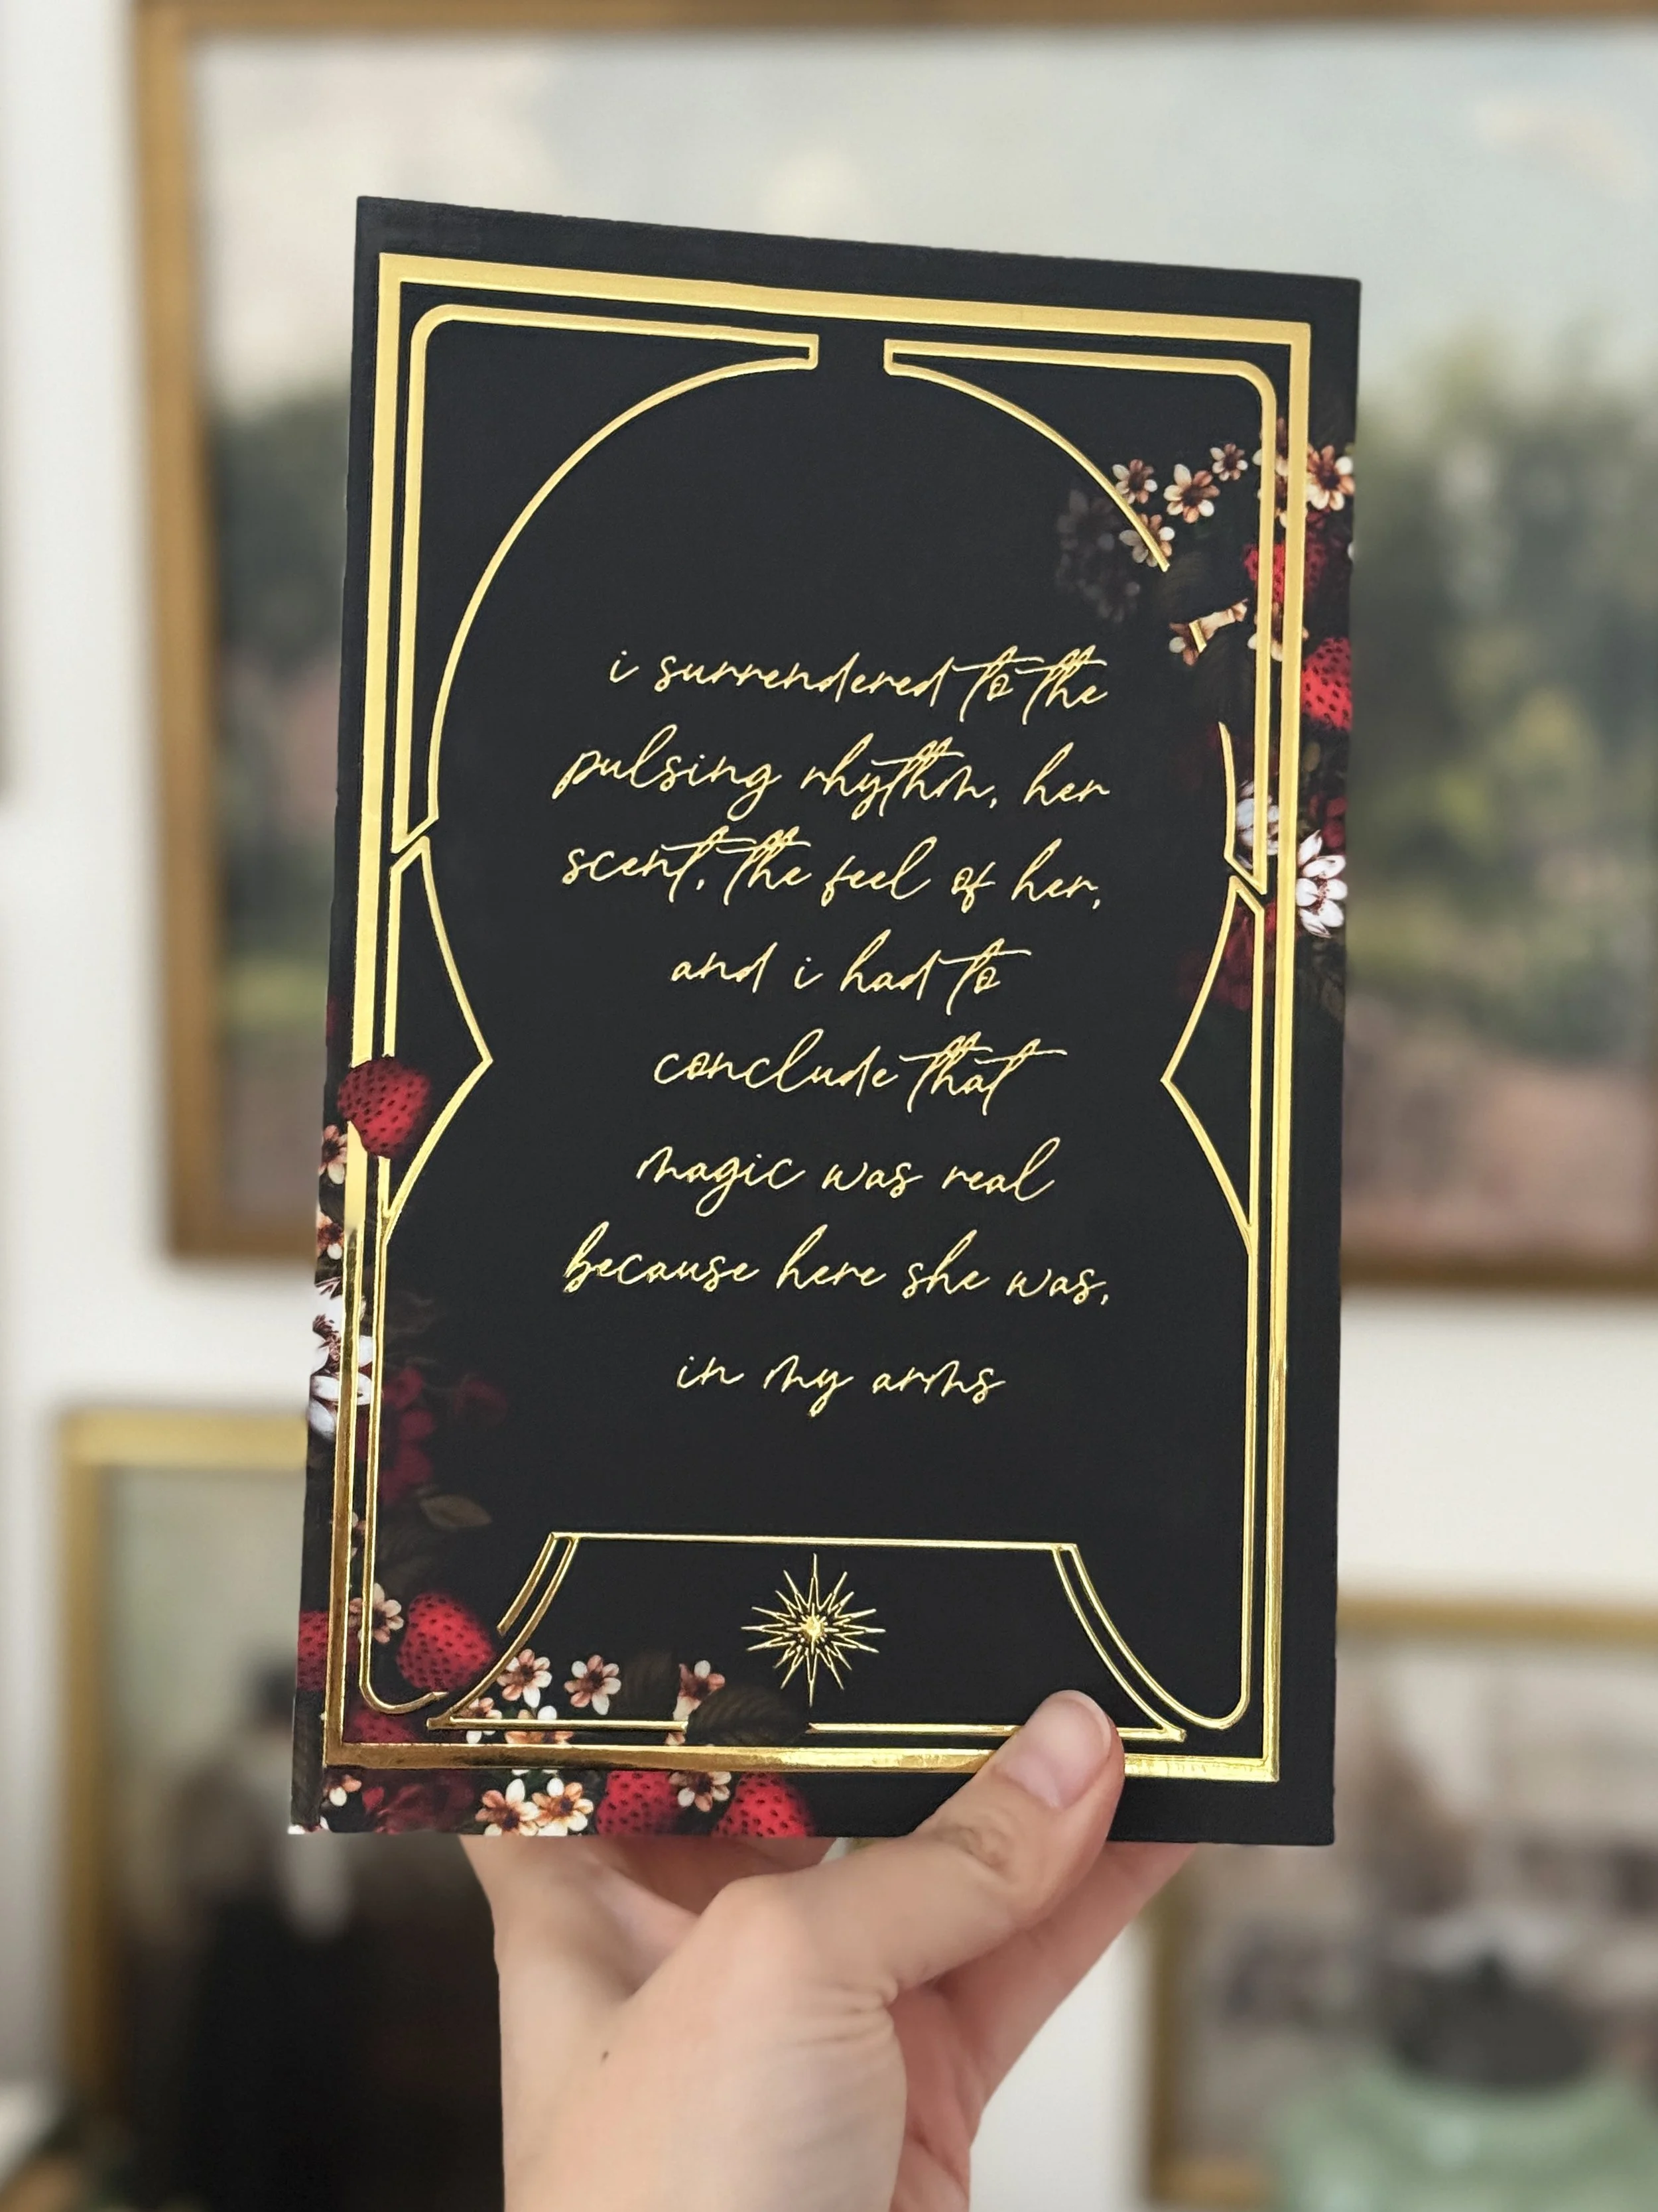 i surrendered to the
pulsing rhythm, her
scent, the feel of her,
and i had to
conclude that
magic was real
because here she was,
in my arms